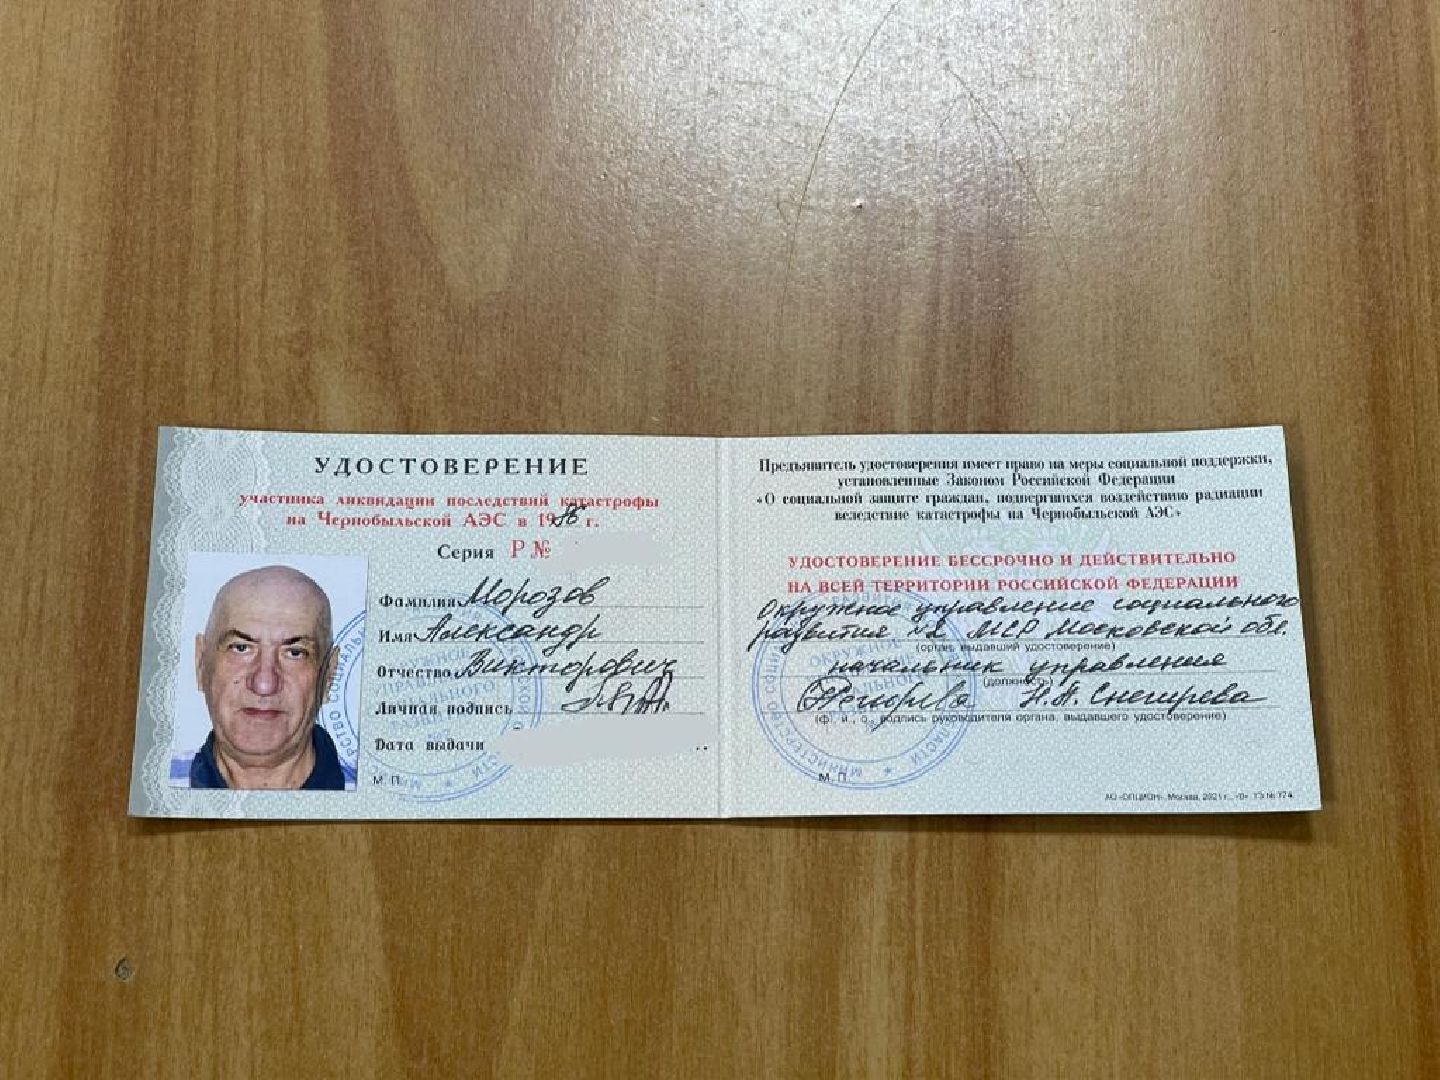 УДОСТОВЕРЕНИЕ
участника ликвидации последствий катастрофы
на Чернобыльской АЭС в 1988 г.
Серия Р №
Фамилия Морозов
Имя Александр
Отчество Викторович
Личная подпись
Дата выдачи
М. П.
Предъявитель удостоверения имеет право на меры социальной поддержки,
установленные Законом Российской Федерации
«О социальной защите граждан, подвергшихся воздействию радиации
вследствие катастрофы на Чернобыльской АЭС»
УДОСТОВЕРЕНИЕ БЕССРОЧНО И ДЕЙСТВИТЕЛЬНО
НА ВСЕЙ ТЕРРИТОРИИ РОССИЙСКОЙ ФЕДЕРАЦИИ
Окружное управление социального
развития №2 МСР Московской обл.
(орган, выдавший удостоверение)
начальник управления
(должность)
Н.П. Снегирева
(ф. и., о., подпись руководителя органа, выдавшего удостоверение)
М. П.
АО «ОПЦИОН», Москва, 2021 г., «В». ТЗ № 774.